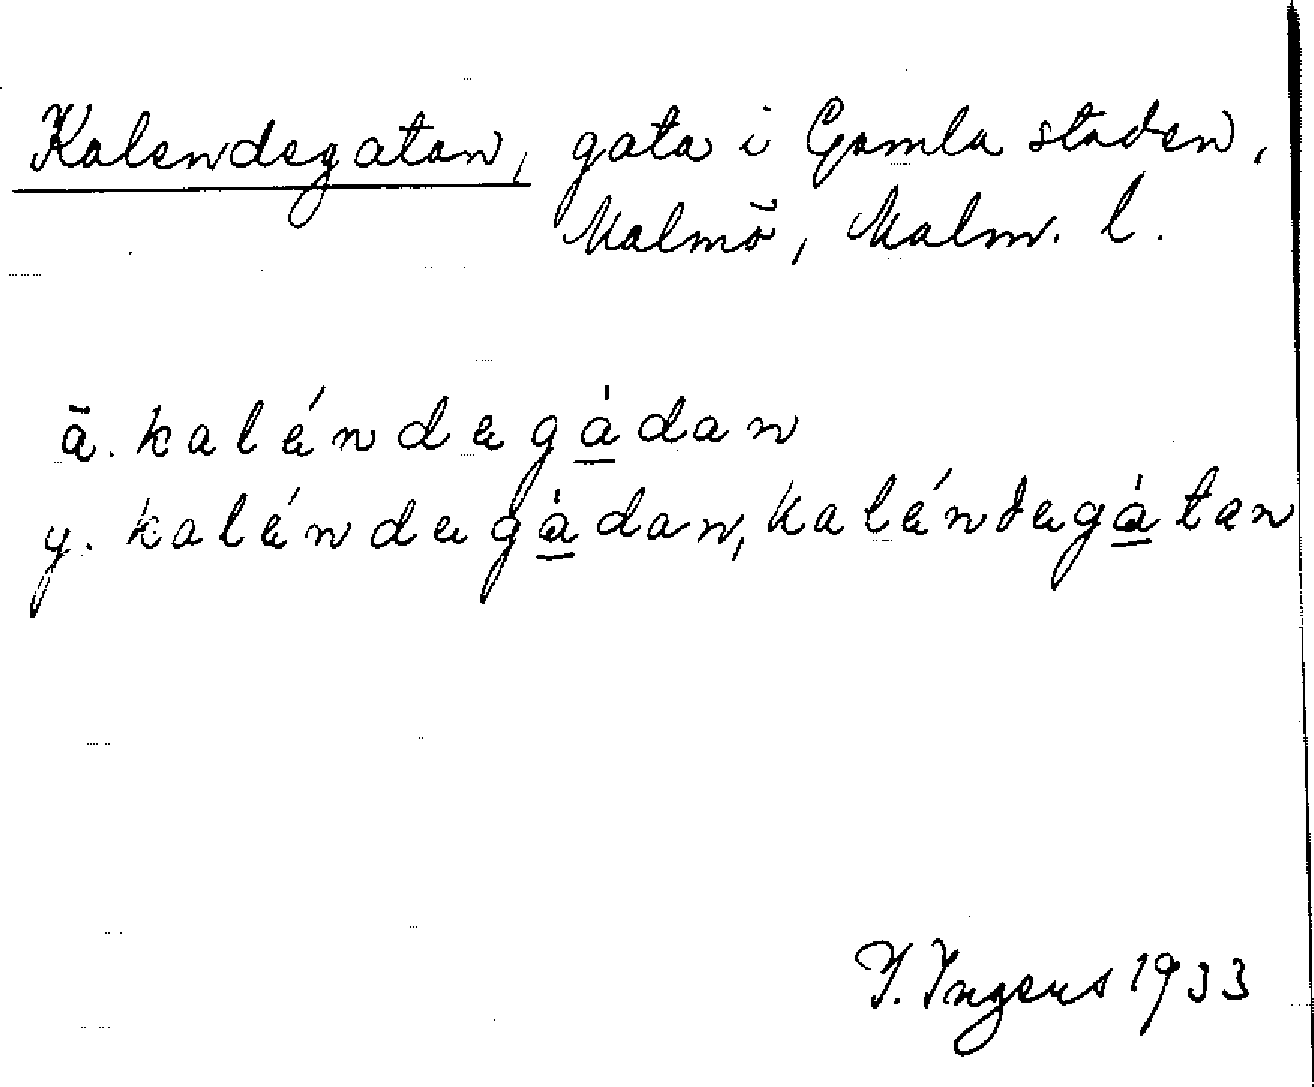 Kalendegatan, gata i Gamla staden,
Malmö, Malm. l.
ä. kaléndegạ̀dan
y. kaléndegạ̀dan, kaléndegạ̀tan
I. Ingers 1933